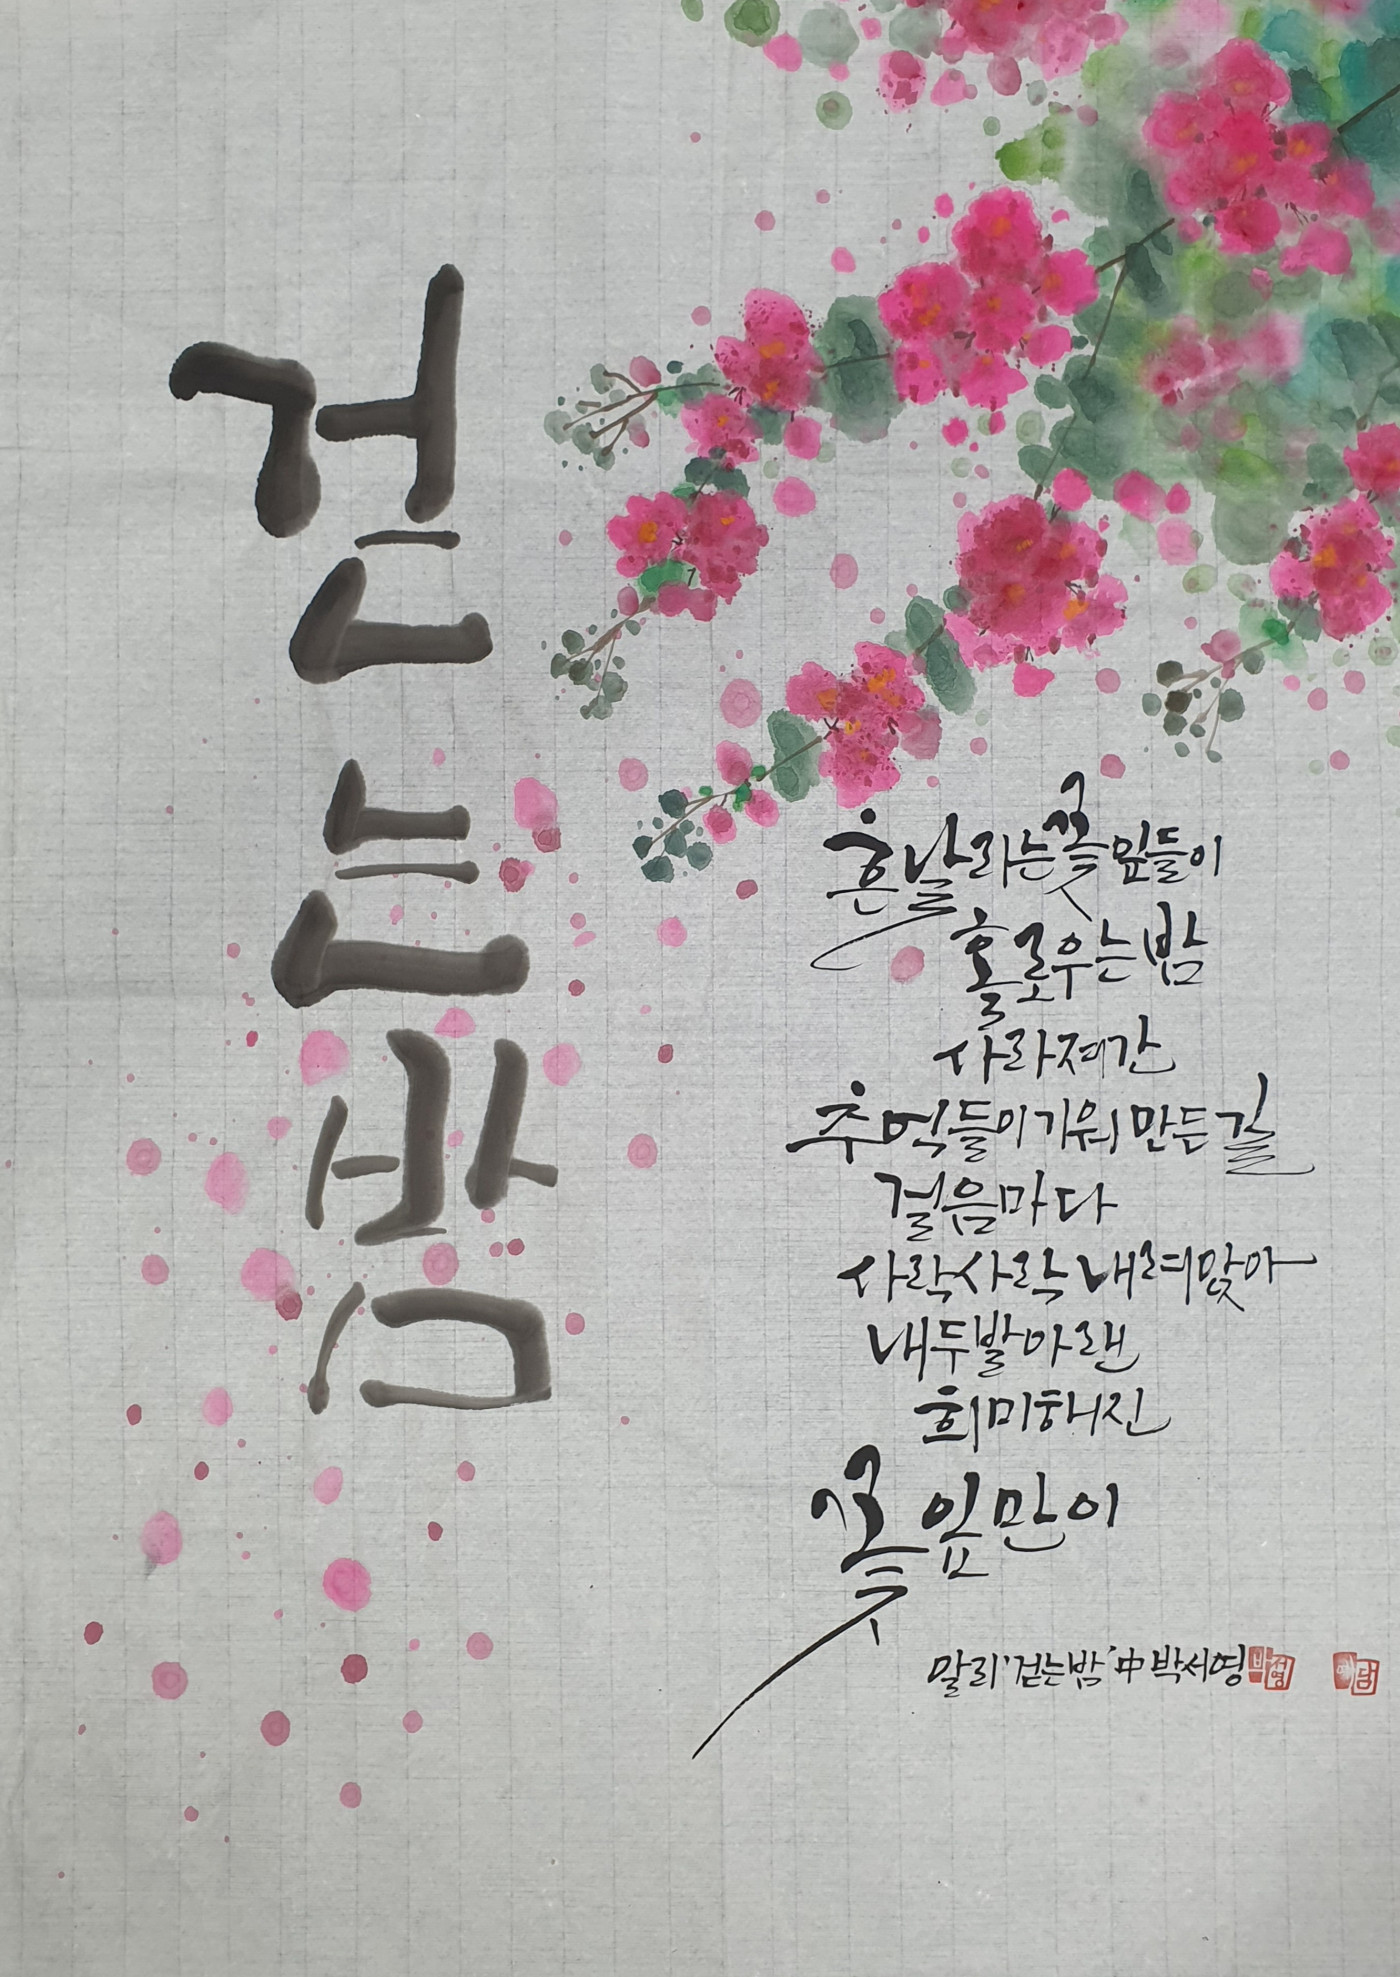 걷는밤
흔날라는꽃잎들이
홀로우는밤
사라져간
추억들이기워만든길
걸음마다
사락사락내려앉아
내두발아랜
희미해진
꽃잎만이
말리'걷는밤'中박서영